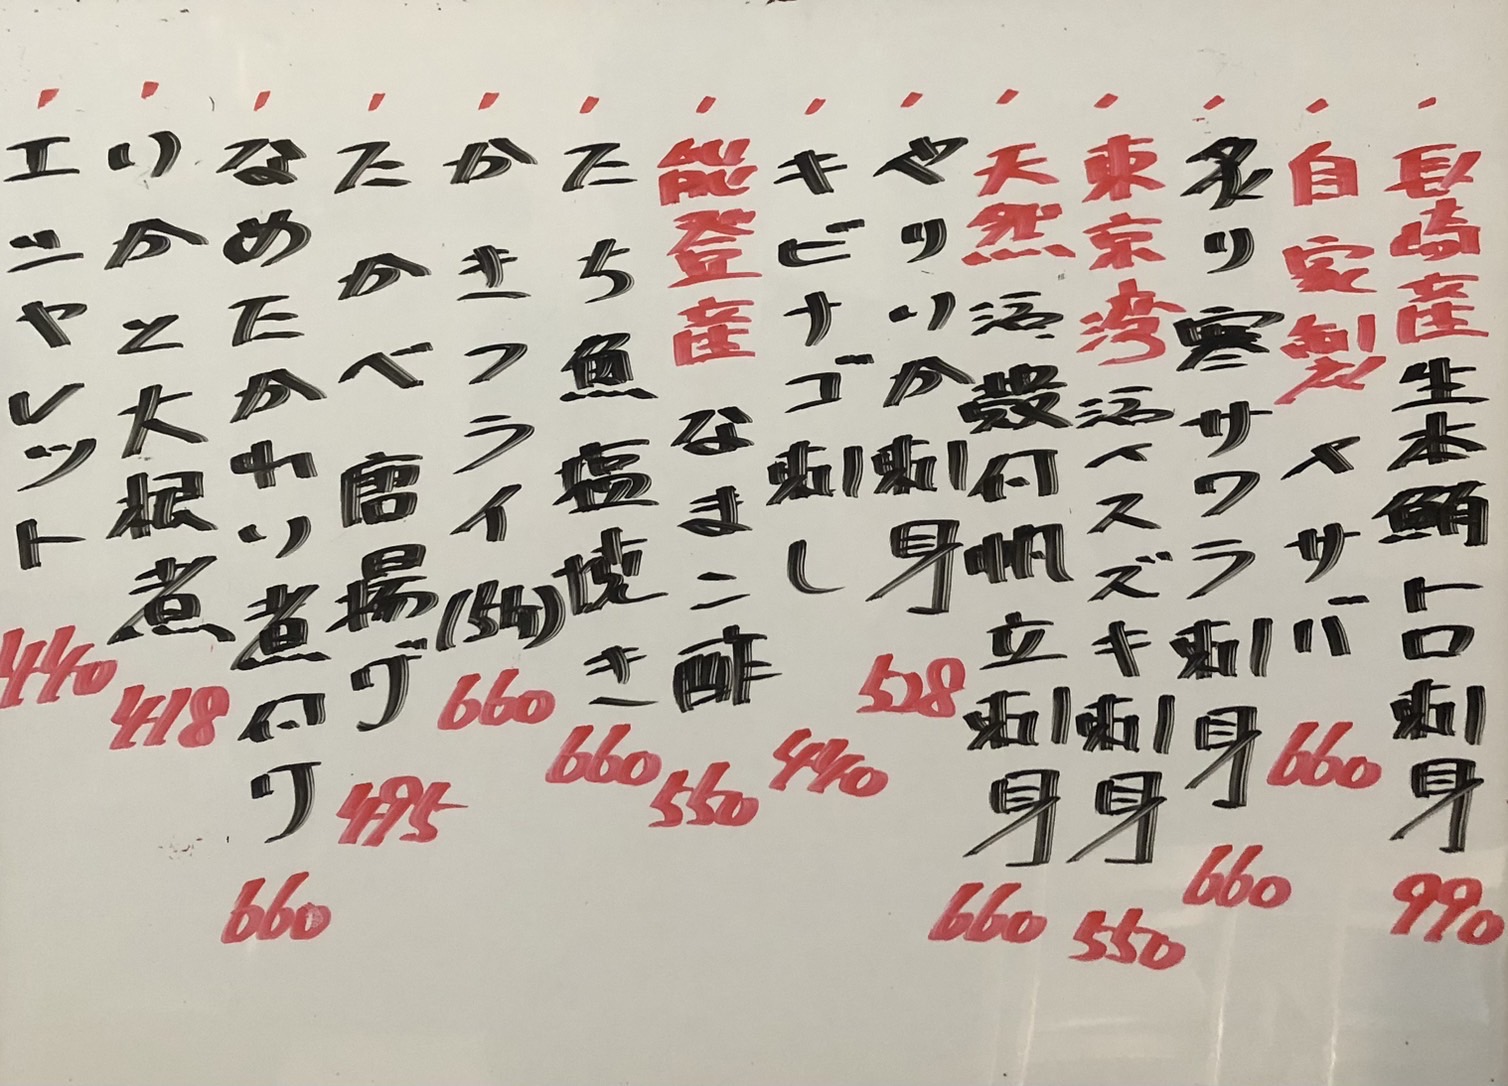 長崎産生本鮪トロ刺身 990
自家製〆サバ 660
炙り寒サワラ刺身 660
東京湾活〆スズキ刺身 550
天然活殻付帆立刺身 660
やりいか刺身 528
キビナゴ刺し 440
能登産なまこ酢 550
たち魚塩焼き 660
かきフライ(5ケ) 660
たかべ唐揚げ 495
なめたかれい煮付け 660
いかと大根煮 418
エシャレット 440